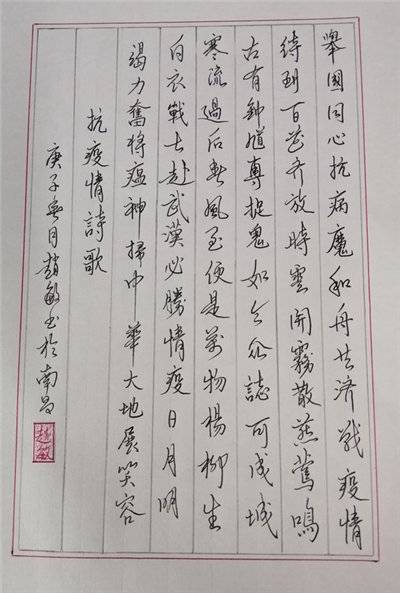 舉國同心抗病魔和舟共济戰疫情
待到百花齐放時雲開霧散燕鶯鳴
古有鍾馗專捉鬼如今众誌可成城
寒流過后春風至便是萬物楊柳生
白衣戰士赴武漢必勝情疫日月明
竭力奮将瘟神掃中華大地展笑容
抗疫情詩歌
庚子春月趙敏书於南昌
趙敏